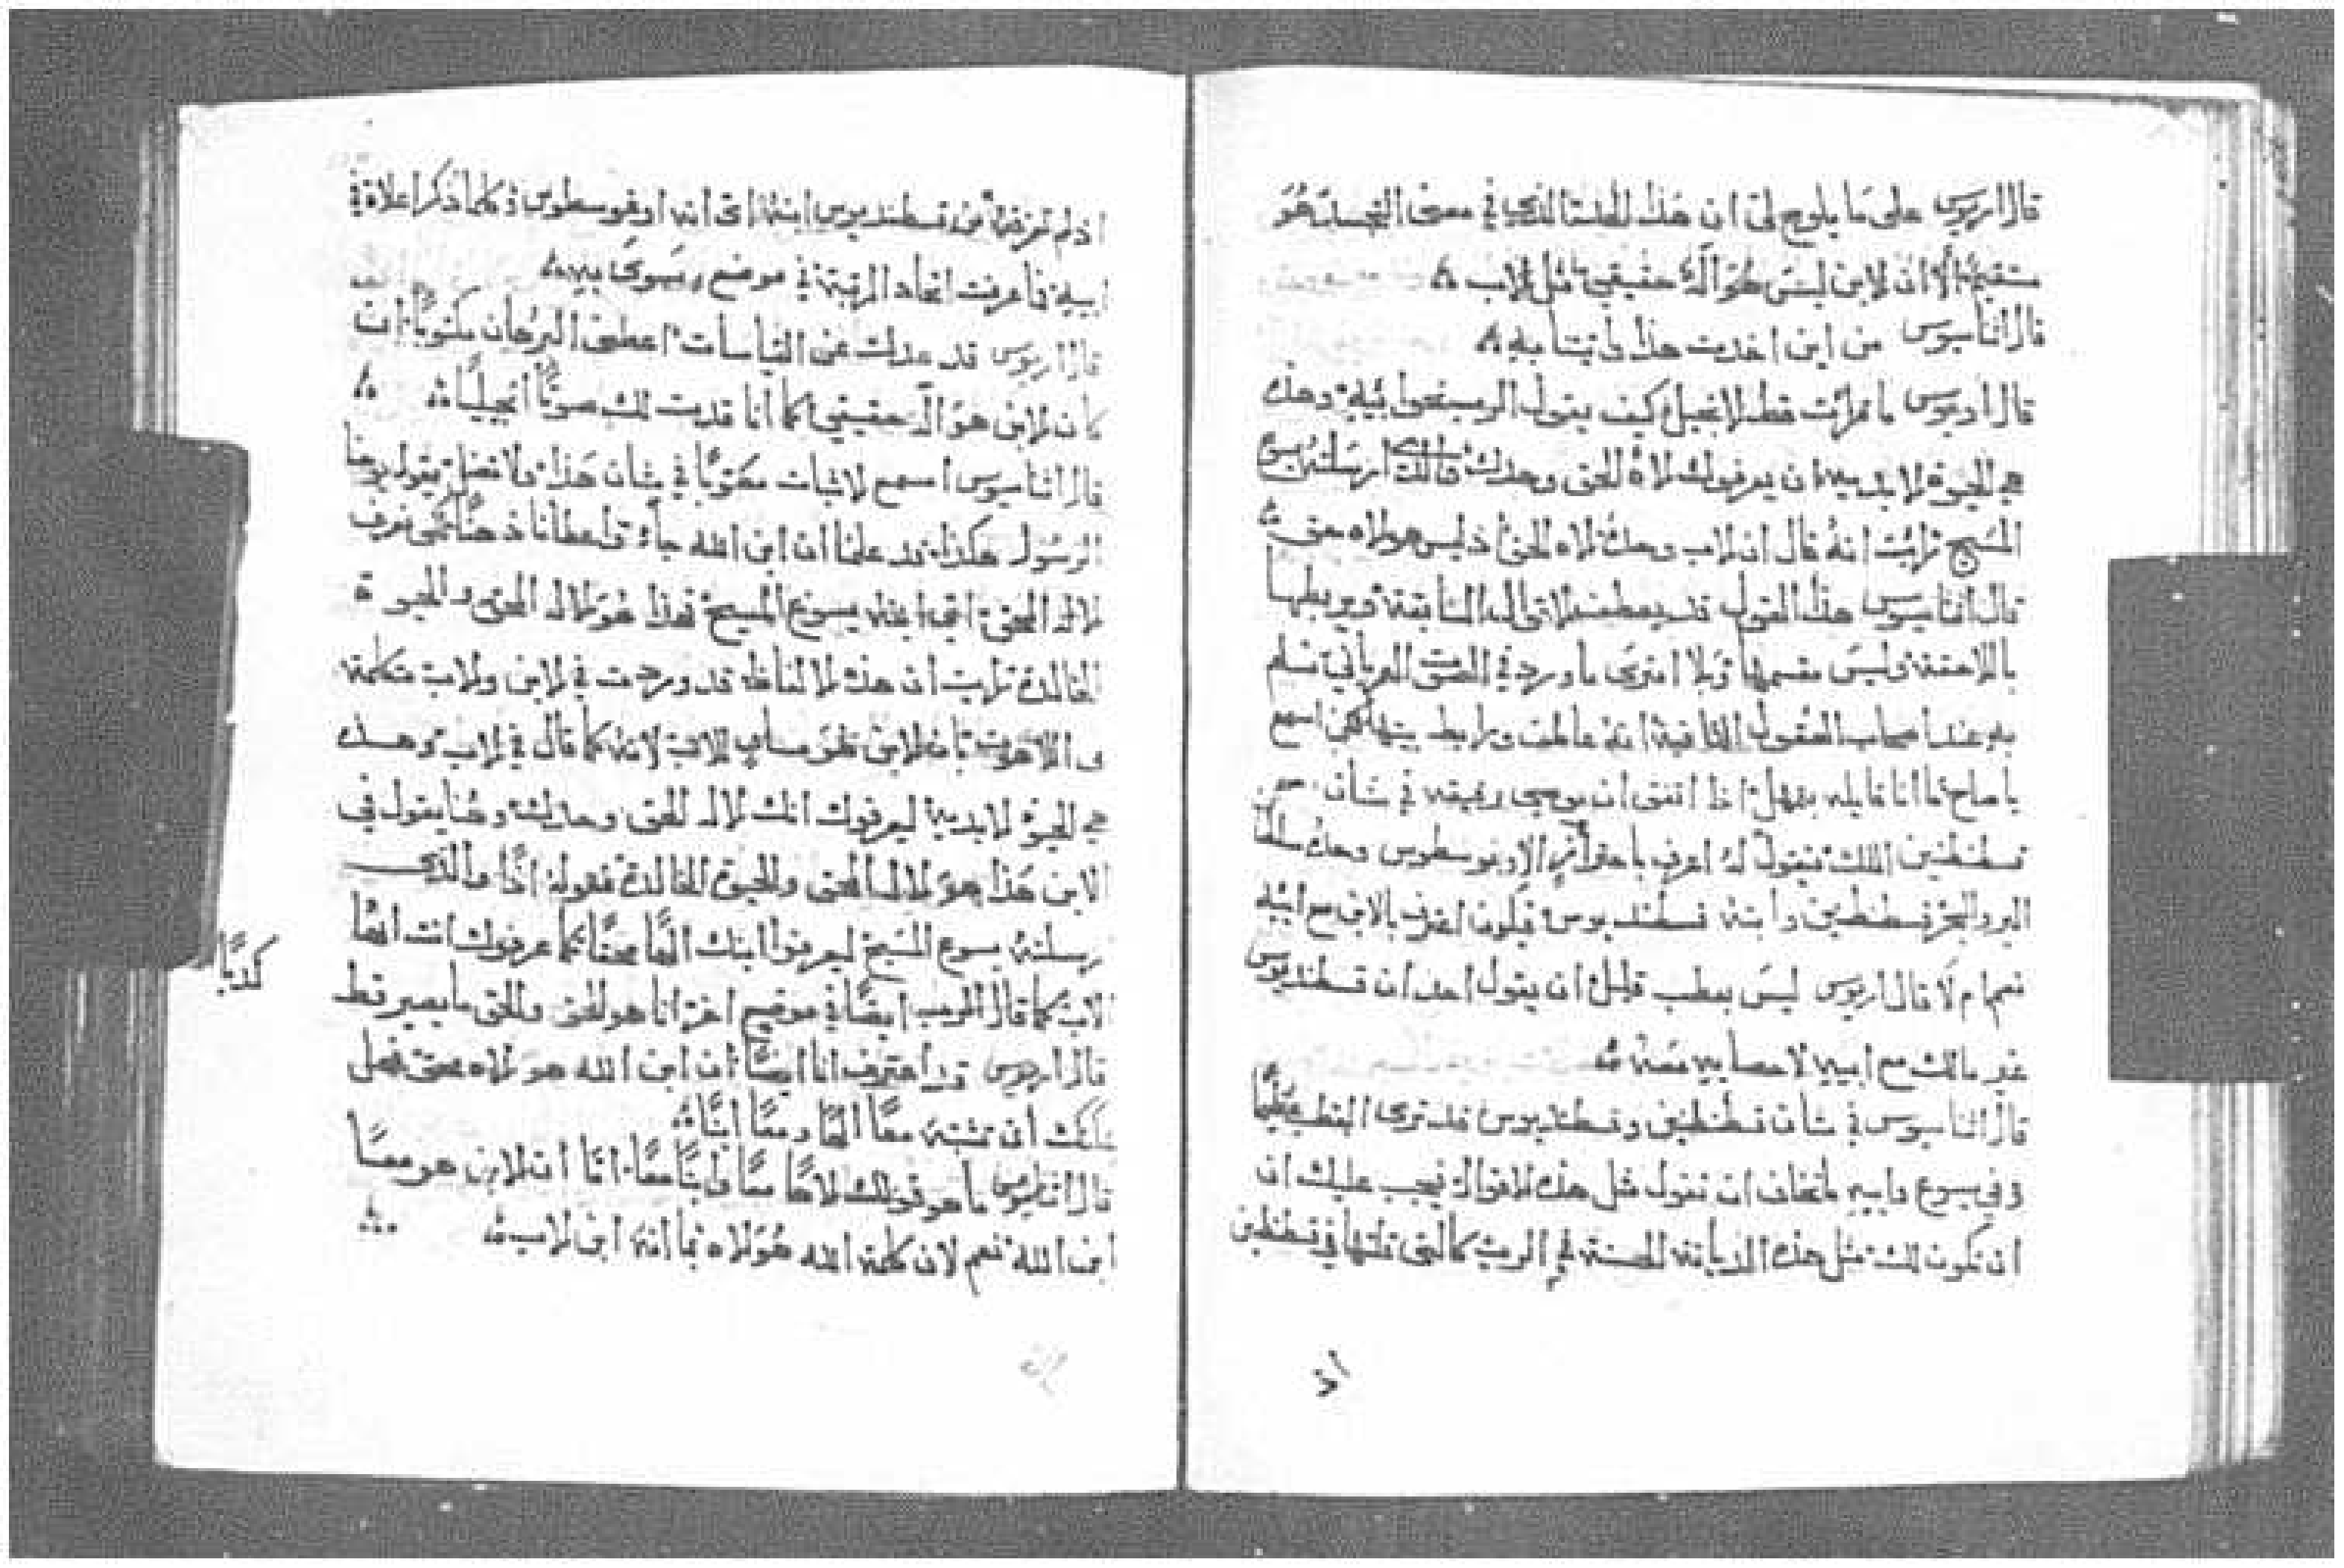 قال اريوس على ما يلوح لي ان هذا الحديث الذي في معنى التجسد هو
مستقيمًا الا ان الابن ليس هو اله حقيقي مثل الاب
قال اثناسيوس من اين اخذت هذا وانيتنا به
قال اريوس ما قرات قط الانجيل كيف يقول الرب نحو ابيه وهذه
هي الحيوة الابديه ان يعرفوك الاه الحق وحدك والذي ارسلته يسوع
المسيح ترايت انه قال ان الاب وحده الاه الحق اذ ليس هو الاه حق
قال اثناسيوس هذا القول قد يعطف الاقوال السابقة ويربطها
باللاحقة وليس مقسمها وبلا امترى ما ورد في الصوت الرباني تسلم
به عند اصحاب العقول الثاقبة انه عاطف ورابط بينها لكن اسمع
يا صاح ما انا قايله بتمهل اذا اتفق ان يوصي رفيقه في شان
قسطنطين الملك فيقول له اعرف يا هذا ان الاوغوسطوس وحده سلطان
البر والبحر قسطنطين وابنه قسطنديوس فيكون اعترف بالابن مع ابيه
نعم ام لا قال اريوس ليس بعطب قليل ان يقول احد ان قسطنديوس
غير مالك مع ابيه لا حصا بيه معه
قال اثناسيوس في شان قسطنطين وقسطنديوس قد ترى العطب عظيمًا
وفي يسوع وابيه ما تخاف ان تقول مثل هذه الاقوال فيجب عليك ان
ان تكون لك مثل هذه الديانة الحسنة في الرب كالتي قلتها في قسطنطين
اذ
اذ لم تفرقه من قسطنديوس ابنه اي انه اوغوسطوس وكما ذكر اعلاه في
ابيه فاعرفت اتحاد المرتبة في موضع ويسوى بيه
قال اريوس قد عدلت عن القياسات اعطي البرهان مكتوبًا ان
كان الابن هو اله حقيقي كما انا قدمت لك صوتًا انجيليًا
قال اثناسيوس اسمع الاثبات مكتوبًا في شان هذا ولا تضل يقول يوحنا
الرسول هكذا قد علمنا ان ابن الله جاء واعطانا ذهنًا لكي نعرف
الاله الحق اي ابنه يسوع المسيح فهذا هو الاله الحق والحيوة
الخالدة ترايت ان هذه الالفاظ قد وردت في الابن والاب متكلمة
في اللاهوت بانه الابن هو مساوٍ للاب لانه كما قال في الاب وهذه
هي الحيوة الابدية ليعرفوك انك الاله الحق وحدك وهنا يقول في
الابن هذا هو الاله الحق والحيوة الخالدة فقوله اذًا والذي
رسلته يسوع المسيح ليعرفوا ابنك الهًا محقًا كما عرفوك انت ايها
الاب كما قال الرب ايضًا في موضع اخر انا هو الحق والحق ما يصير قط
كذبًا
قال اريوس قد اعترف انا ايضًا ان ابن الله هو الاه محق فهل
يمكنك ان تثبته معًا الهًا ومعًا ابنًا
قال اثناسيوس ما هو قولك الاهًا معًا وابنًا معًا اما ان الابن هو معًا
ابن الله نعم لان كلمة الله هو الاه بما انه ابن الاب